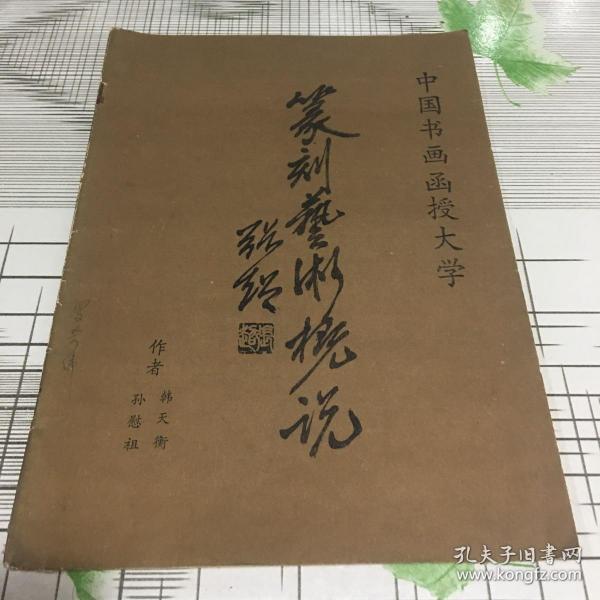 中国书画函授大学
篆刻艺術概说
作者
韩天衡
孙慰祖
孔夫子旧书网
www.kongfz.com